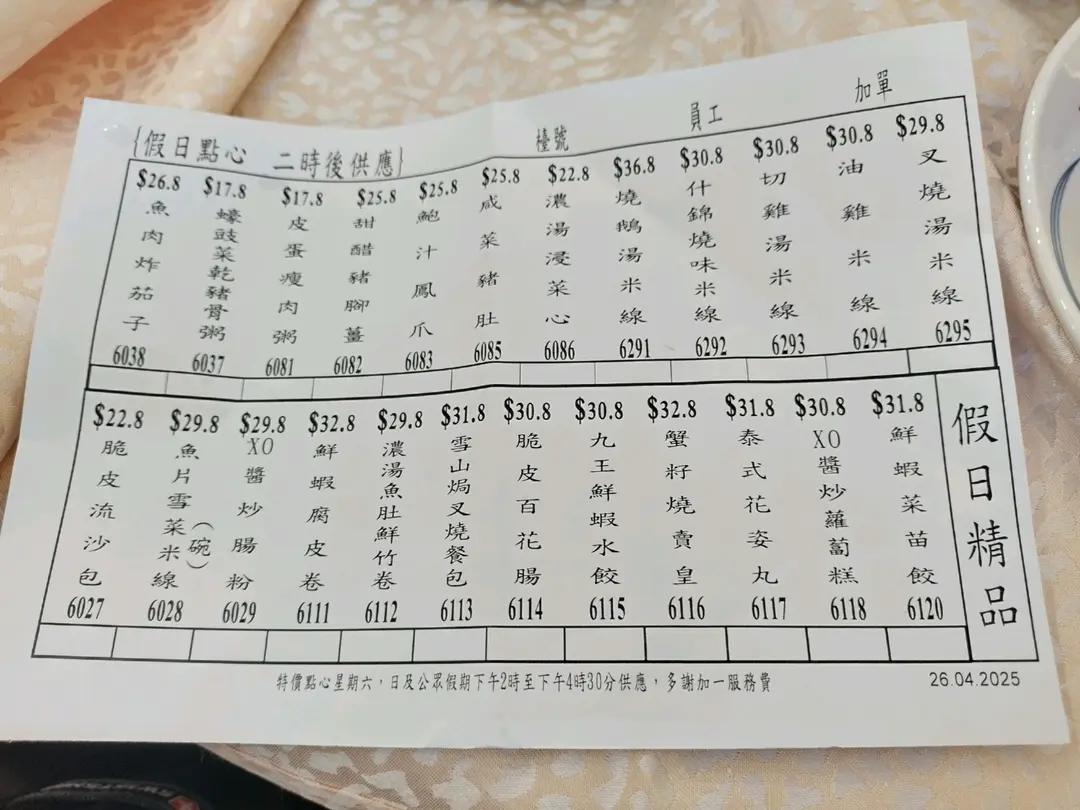 {假日點心 二時後供應}
檯號
員工
加單
$26.8
魚肉炸茄子
6038
$17.8
蠔豉菜乾豬骨粥
6037
$17.8
皮蛋瘦肉粥
6081
$25.8
甜醋豬腳薑
6082
$25.8
鮑汁鳳爪
6083
$25.8
咸菜豬肚
6085
$22.8
濃湯浸菜心
6086
$36.8
燒鵝湯米線
6291
$30.8
什錦燒味米線
6292
$30.8
切雞湯米線
6293
$30.8
油雞米線
6294
$29.8
叉燒湯米線
6295
$22.8
脆皮流沙包
6027
$29.8
魚片雪菜米線
(碗)
6028
$29.8
XO醬炒腸粉
6029
$32.8
鮮蝦腐皮卷
6111
$29.8
濃湯魚肚鮮竹卷
6112
$31.8
雪山焗叉燒餐包
6113
$30.8
脆皮百花腸
6114
$30.8
九王鮮蝦水餃
6115
$32.8
蟹籽燒賣皇
6116
$31.8
泰式花姿丸
6117
$30.8
XO醬炒蘿蔔糕
6118
$31.8
鮮蝦菜苗餃
6120
假日精品
特價點心星期六，日及公眾假期下午2時至下午4時30分供應，多謝加一服務費
26.04.2025